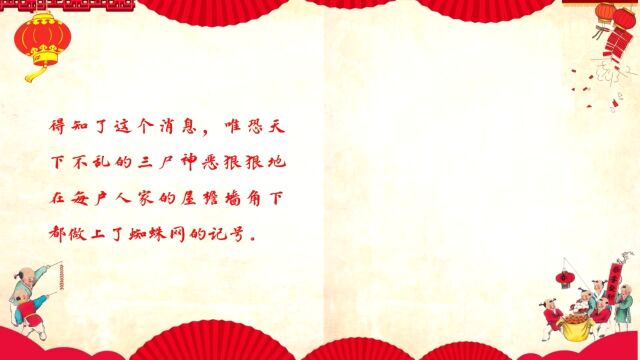 得知了这个消息，唯恐天
下不乱的三尸神恶狠狠地
在每户人家的屋檐墙角下
都做上了蜘蛛网的记号。